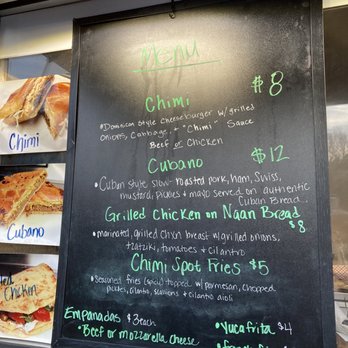 Menu
$8
Chimi
•Dominican Style cheeseburger w/grilled
onions, Cabbage, + "Chimi" Sauce
Beef or Chicken
Cubano $12
•Cuban style slow-roasted pork, ham, Swiss,
mustard, pickles + mayo served on authentic
Cuban Bread.
Grilled Chicken on Naan Bread
$8
•marinated, grilled chxn breast w/grilled onions,
tzatziki, tomatoes + cilantro
Chimi Spot Fries $5
•Seasoned fries topped w/parmesan, chopped
pickles, cilantro, + cilantro aioli
Empanadas $3each
•Beef or mozzarella cheese
•Yuca frita $4
Chimi
Cubano
Chicken